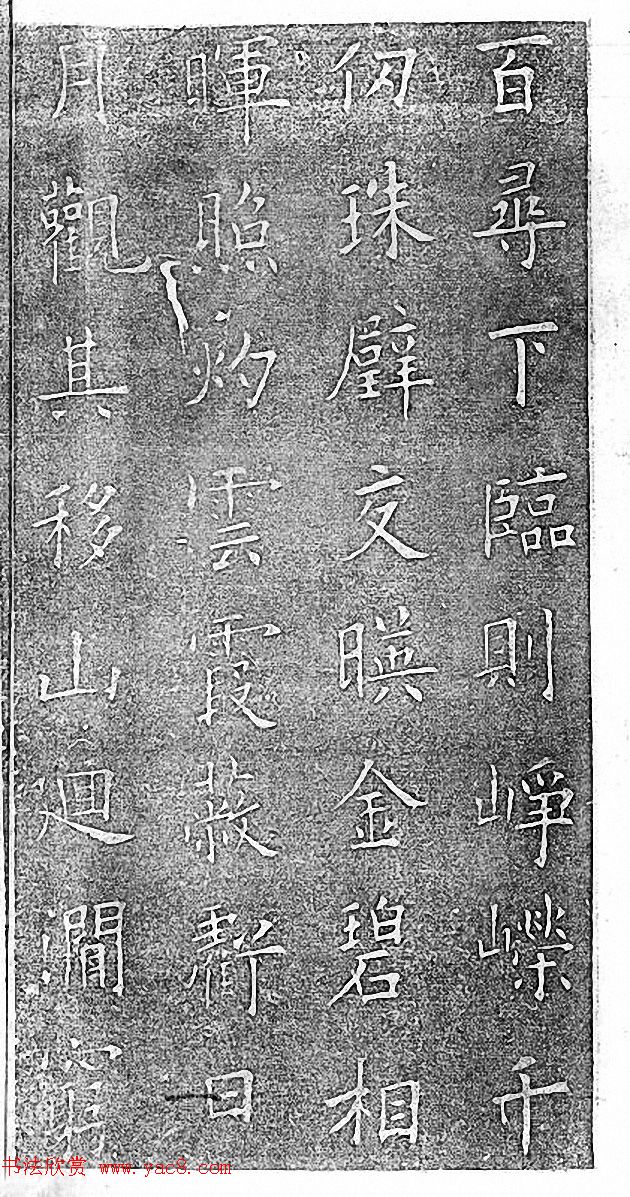 百尋下臨則崢嶸千
仞珠璧交暎金碧相
暉照灼雲霞蔽虧日
月觀其移山迴澗窮
书法欣赏 www.yac8.com